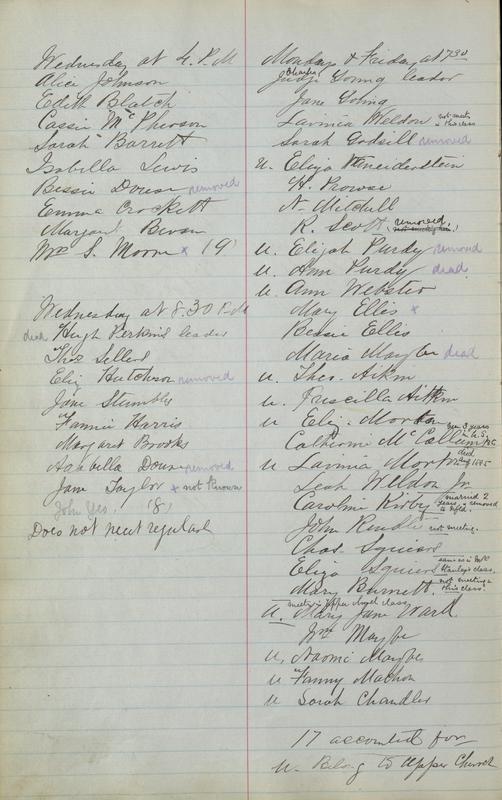 Wednesday at 4. P.M
Alice Johnson
Edith Blatch
Cassie McPherson
Sarah Barrett
Isabella Lewis
Bessie Dowse removed
Emma Crockett
Margaret Bevan
Mrs S. Moore x 19
Wednesday at 8.30 P.M
dead Hugh Perkins leader
Thos Sellers
Eliz Hutchson removed
Jane Stumbles
Fannie Harris
Margaret Brooks
Arabella Dowse removed
Jane Taylor x not known
John Yeo. (8)
Does not meet regular
Monday & Friday at 7.30
Charles
Judge Young leader
Jane Young
Lavinia Weldon not meeting in this class
Sarah Godsill removed
u. Eliza
H. Prowse
N. Mitchell
R. Scott (removed.)
u. Elizah Purdy removed
u. Ann Purdy dead
u. Ann Webster
Mary Ellis x
Bessie Ellis
Maria Maybee dead
u. Theo. Aitkin
u. Priscilla Aitkin
u Eliz. Morton
Catherine McCallum
u Lavinia Morton died
Leah Weldon Jr
Caroline Kirby married 2 years & removed
John not meeting.
Chas. Squires
Eliza Squires
Mary Burnett. not meeting in this class.
meets in Upper church class
u. Mary Jane Ward
Wm Maybe
u. Naomi Maybee
u Fanny Machon
u Sarah Chandler
17 accounted for
u. Belong to Upper Church